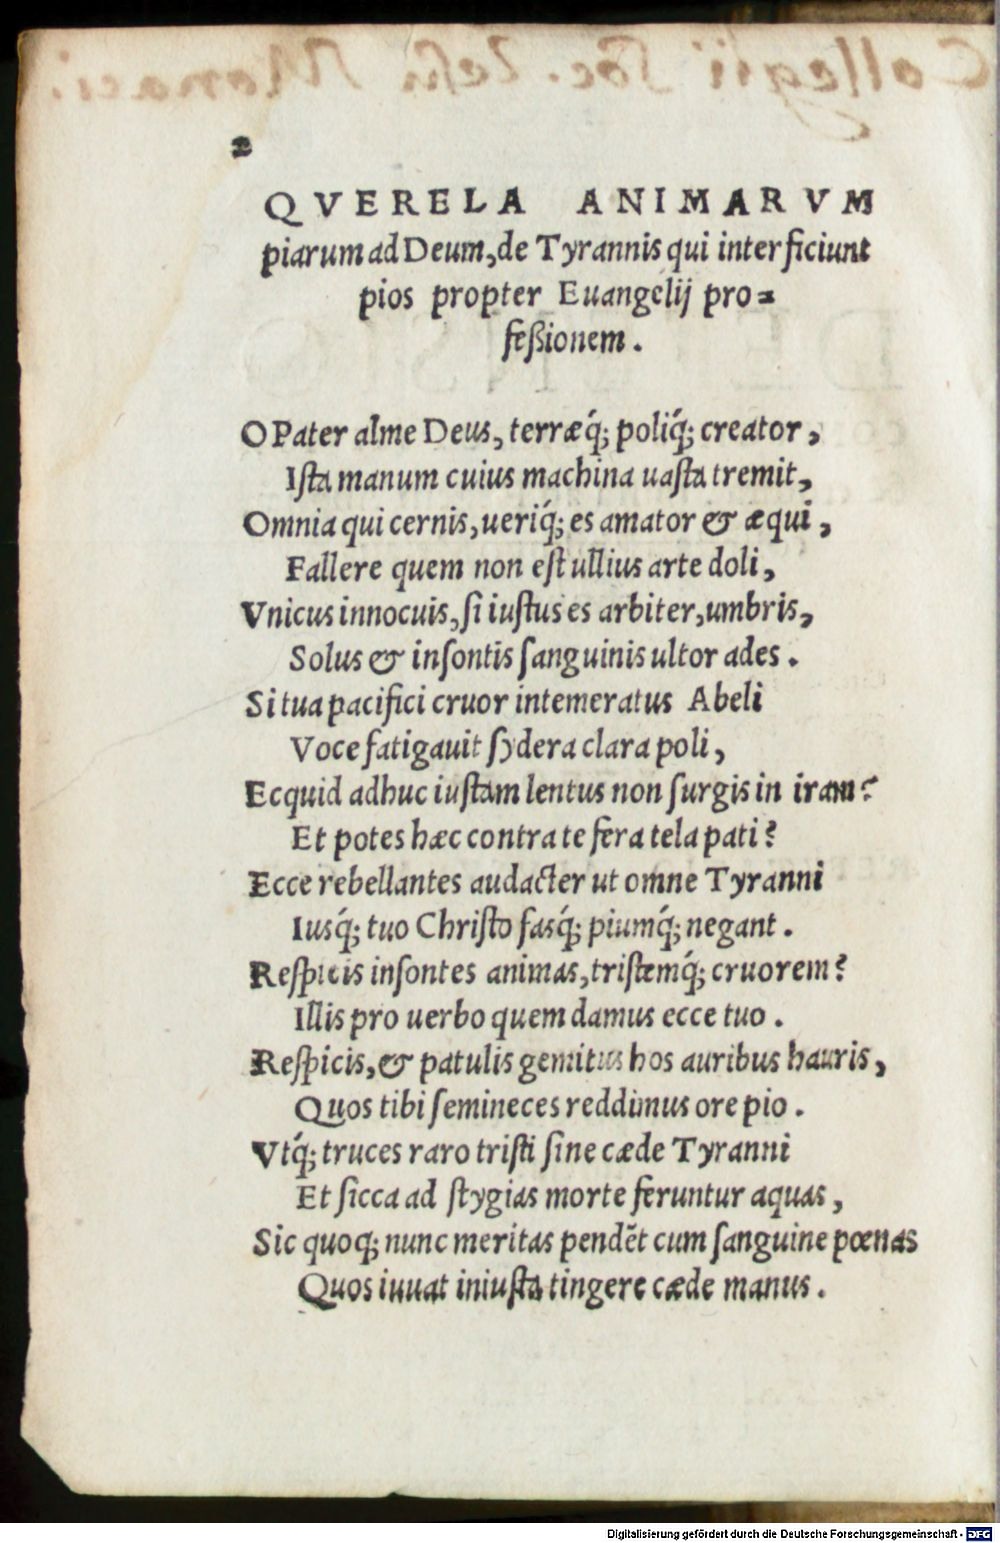 Collegii Soc. Iesu Monaci.
2
QVERELA ANIMARVM
piarum ad Deum, de Tyrannis qui interficiunt
pios propter Euangelij pro=
feßionem.
O Pater alme Deus, terræq́; poliq́; creator,
Ista manum cuius machina uasta tremit,
Omnia qui cernis, ueriq́; es amator & æqui,
Fallere quem non est ullius arte doli,
Vnicus innocuis, si iustus es arbiter, umbris,
Solus & insontis sanguinis ultor ades.
Si tua pacifici cruor intemeratus Abeli
Voce fatigauit sydera clara poli,
Ecquid adhuc iustam lentus non surgis in iram?
Et potes hæc contra te fera tela pati?
Ecce rebellantes audacter ut omne Tyranni
Iusq́; tuo Christo fasq́; piumq́; negant.
Respicis insontes animas, tristemq́; cruorem?
Illis pro uerbo quem damus ecce tuo.
Respicis, & patulis gemitus hos auribus hauris,
Quos tibi semineces reddimus ore pio.
Vtq́; truces raro tristi sine cæde Tyranni
Et sicca ad stygias morte feruntur aquas,
Sic quoq; nunc meritas pendēt cum sanguine pœnas
Quos iuuat iniusta tingere cæde manus.
Digitalisierung gefördert durch die Deutsche Forschungsgemeinschaft - DFG